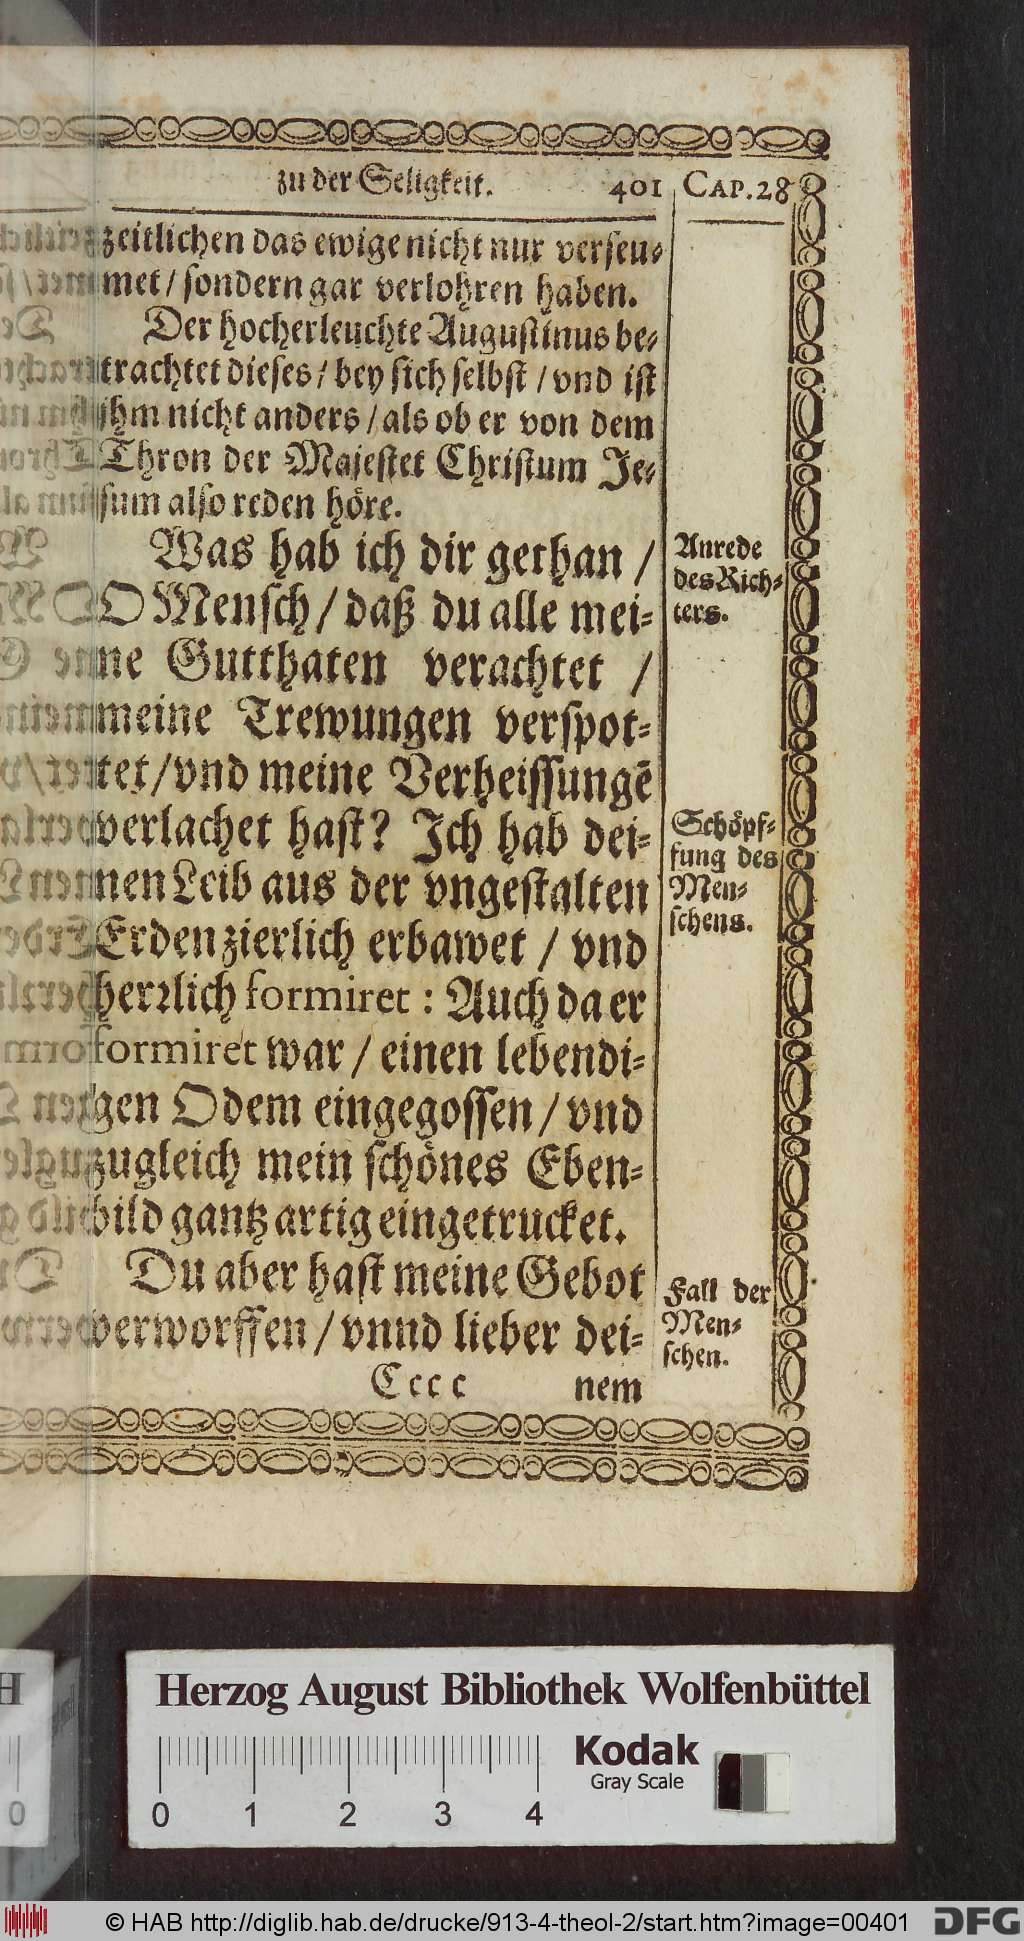 zu der Seligkeit. 401 CAP. 28
zeitlichen das ewige nicht nur verseu-
met / sondern gar verlohren haben.
Der hocherleuchte Augustinus be-
trachtet dieses / bey sich selbst / vnd ist
ihm nicht anders / als ob er von dem
Thron der Majestet Christum Je-
sum also reden höre.
Was hab ich dir gethan /
O Mensch / daß du alle mei-
ne Gutthaten verachtet /
meine Trewungen verspot-
tet / vnd meine Verheissungē
verlachet hast? Ich hab dei-
nen Leib aus der vngestalten
Erden zierlich erbawet / vnd
herꝛlich formiret : Auch da er
formiret war / einen lebendi-
gen Odem eingegossen / vnd
zugleich mein schönes Eben-
bild gantz artig eingetrucket.
Du aber hast meine Gebot
verworffen / vnnd lieber dei-
Cccc nem
Anrede
des Rich-
ters.
Schöpf-
fung des
Men-
schens.
Fall der
Men-
schen.
Herzog August Bibliothek Wolfenbüttel
Kodak
Gray Scale
0 1 2 3 4
© HAB http://diglib.hab.de/drucke/913-4-theol-2/start.htm?image=00401
DFG